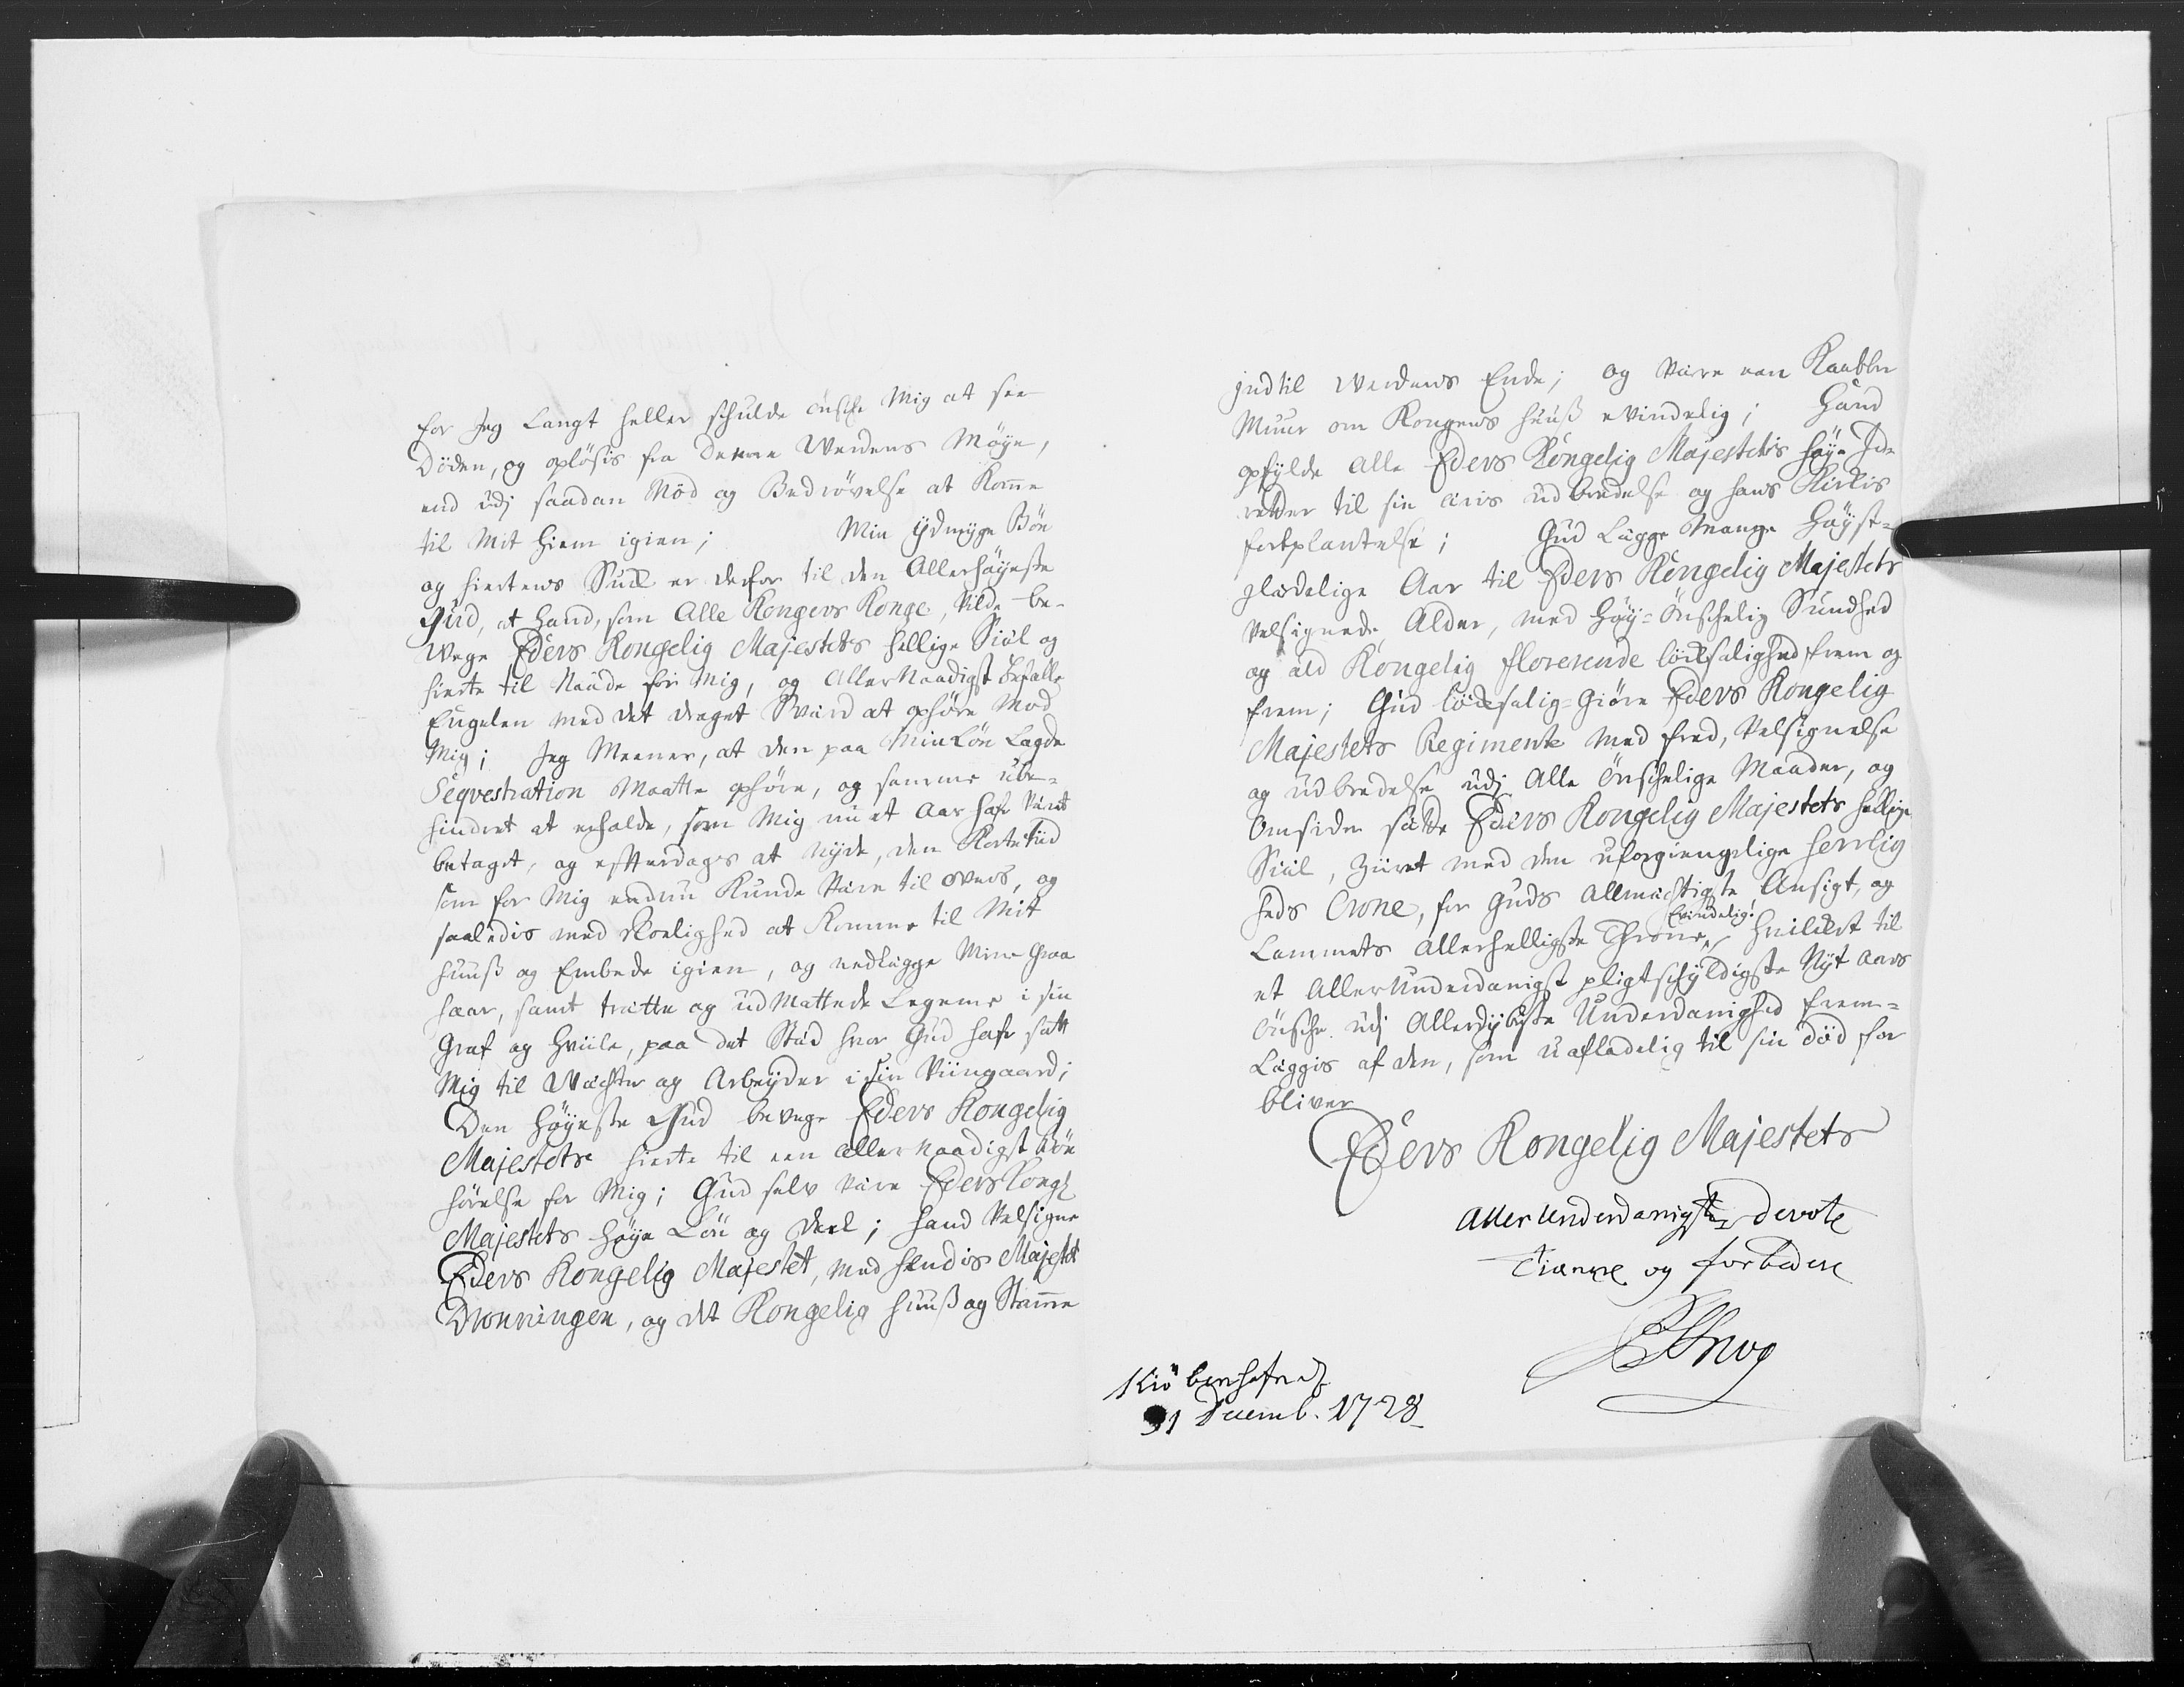 for Jeg Langt heller schulde önsche Mig at see
Döden, og oplösis fra denne Werdens Möye,
end udj saadan Nöd og Bedrövelse at Komme
til Mit Hiem igien; Min ÿdmyge Bön
og hiertens Suck er derfor til den Allerhöyeste
Gud, at hand, som Alle Kongers Konge, vilde be-
wege Eders Kongelig Majestets hellige Siæl og
hierte til Naade for Mig, og AllerNaadigst befalle
Engelen med det draget Sværd at ophöre Mod
Mig; Jeg Meener, at den paa Min Lön Lagde
Seqvestration Maatte ophöre, og samme ube-
hindret at erholde, som Mig nu et Aar hafr været
betaget, og effterdags at nyde, den Korte tiid
som for Mig endnu Kunde være til overs, og
saaledis med Roelighed at Komme til Mit
huuss og Embede igien, og nedlægge Mine Graa
haar, samt trætte og udMattede Legeme i sin
Graf og Hviile, paa det Stæd hvor Gud hafr satt
Mig til Wæchter og Arbeyder i sin Viingaard;
Den Höyeste Gud bevege Eders Kongelig
Majestets hierte til een allernaadigst bön
hörelse for Mig; Gud selv være Eders Kongl
Majestets höye Lön og Deel; hand Velsigne
Eders Kongelig Majestet, med hendis Majestet
Dronningen, og det Kongelig huuss og Stamme
indtil Werdens Ende; og være een Kaabber
Muur om Kongens huuss evindelig; Hand
opfylde alle Eders Kongelig Majestets höye Id-
retter til sin æris udbredelse og hans Kirkis
fortplantelse; Gud Lægge Mange Höyst-
glædelige Aar til Eders Kongelig Majestets
Velsignede Alder, med Höy-önschelig Sundhed
og ald Kongelig florerende löcksalighed frem og
frem; Gud löcksalig-Giöre Eders Kongelig
Majestets Regimente med fred, Velsignelse
og udbredelse udj Alle önschelige Maader, og
Omsider sætte Eders Kongelig Majestets hellige
Siæl, ziiret med den uforgiengelige Herrlig
heds Crone, for Guds allmæchtigste Ansigt, og
Lammets allerhelligste Throne, Evindelig! Hvilcket til
et AllerUnderdanigst pligtschyldigste Nyt Aars
önsche udj Allerdybeste Underdanighed frem-
Læggis af den, som uafladelig til sin död for
bliver
Eders Kongelig Majestets
allerUnderdanigste devote
Tienere og forbedere
Kiöbenhafn d.
31 Decemb. 1728